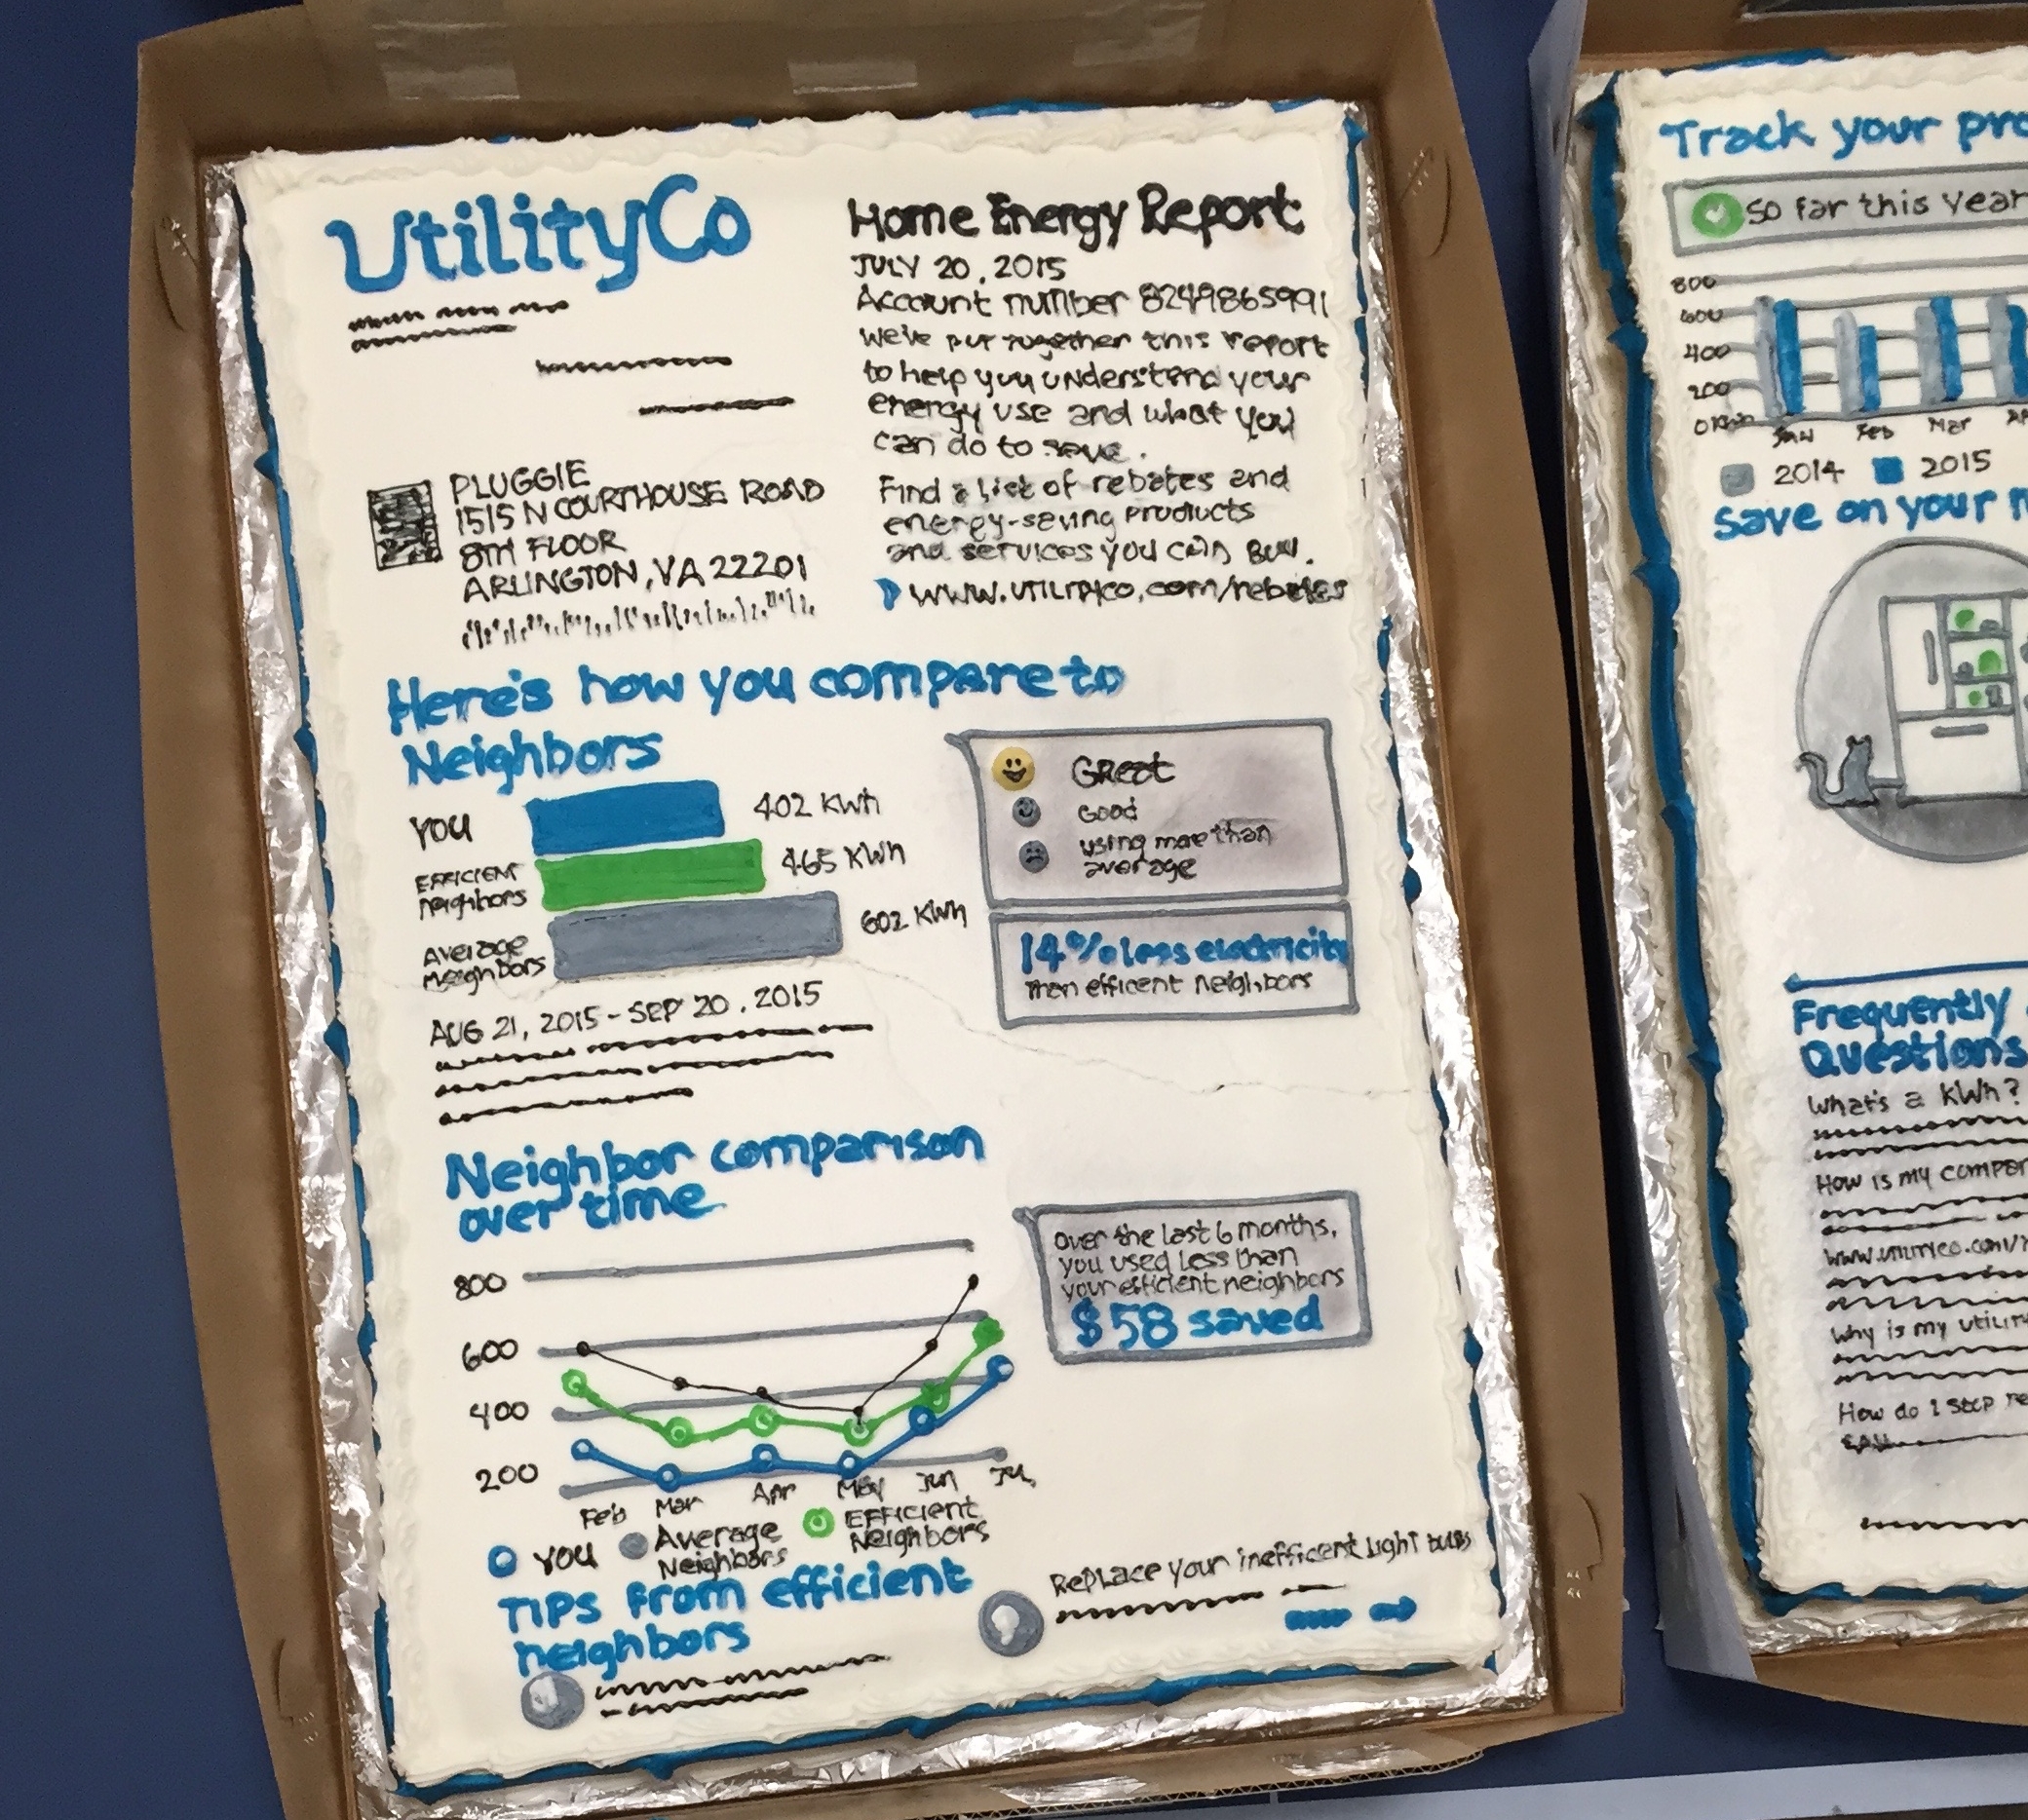 UtilityCo
Home Energy Report
JULY 20, 2015
Account number 8249865991
We've put together this report
to help you understand your
energy use and what you
can do to save.
Find a list of rebates and
energy-saving products
and services you can buy.
www.UTILITYco.com/rebates
PLUGGIE
1515 N COURTHOUSE ROAD
8TH FLOOR
ARLINGTON, VA 22201
Here's how you compare to
Neighbors
YOU
402 KWh
EFFICIENT
neighbors
465 KWh
Average
neighbors
602 KWh
GReat
Good
using more than
average
14% less electricity
then efficent neighbors
AUG 21, 2015 - SEP 20, 2015
Neighbor comparison
over time
800
600
400
200
Feb Mar Apr May Jun JUL
YOU
Average
Neighbors
EFFICIENT
Neighbors
Over the last 6 months,
you used Less than
your efficient neighbors
$58 saved
TIPS from efficient
neighbors
RePLace your inefficent Light bulbs
Track your
So far this Year
800
600
400
200
0
Jan Feb Mar
2014 2015
Save on your
Frequently
Questions
What's a KWh?
How is my
www.UTILITYco.com/
Why is my
How do I stop